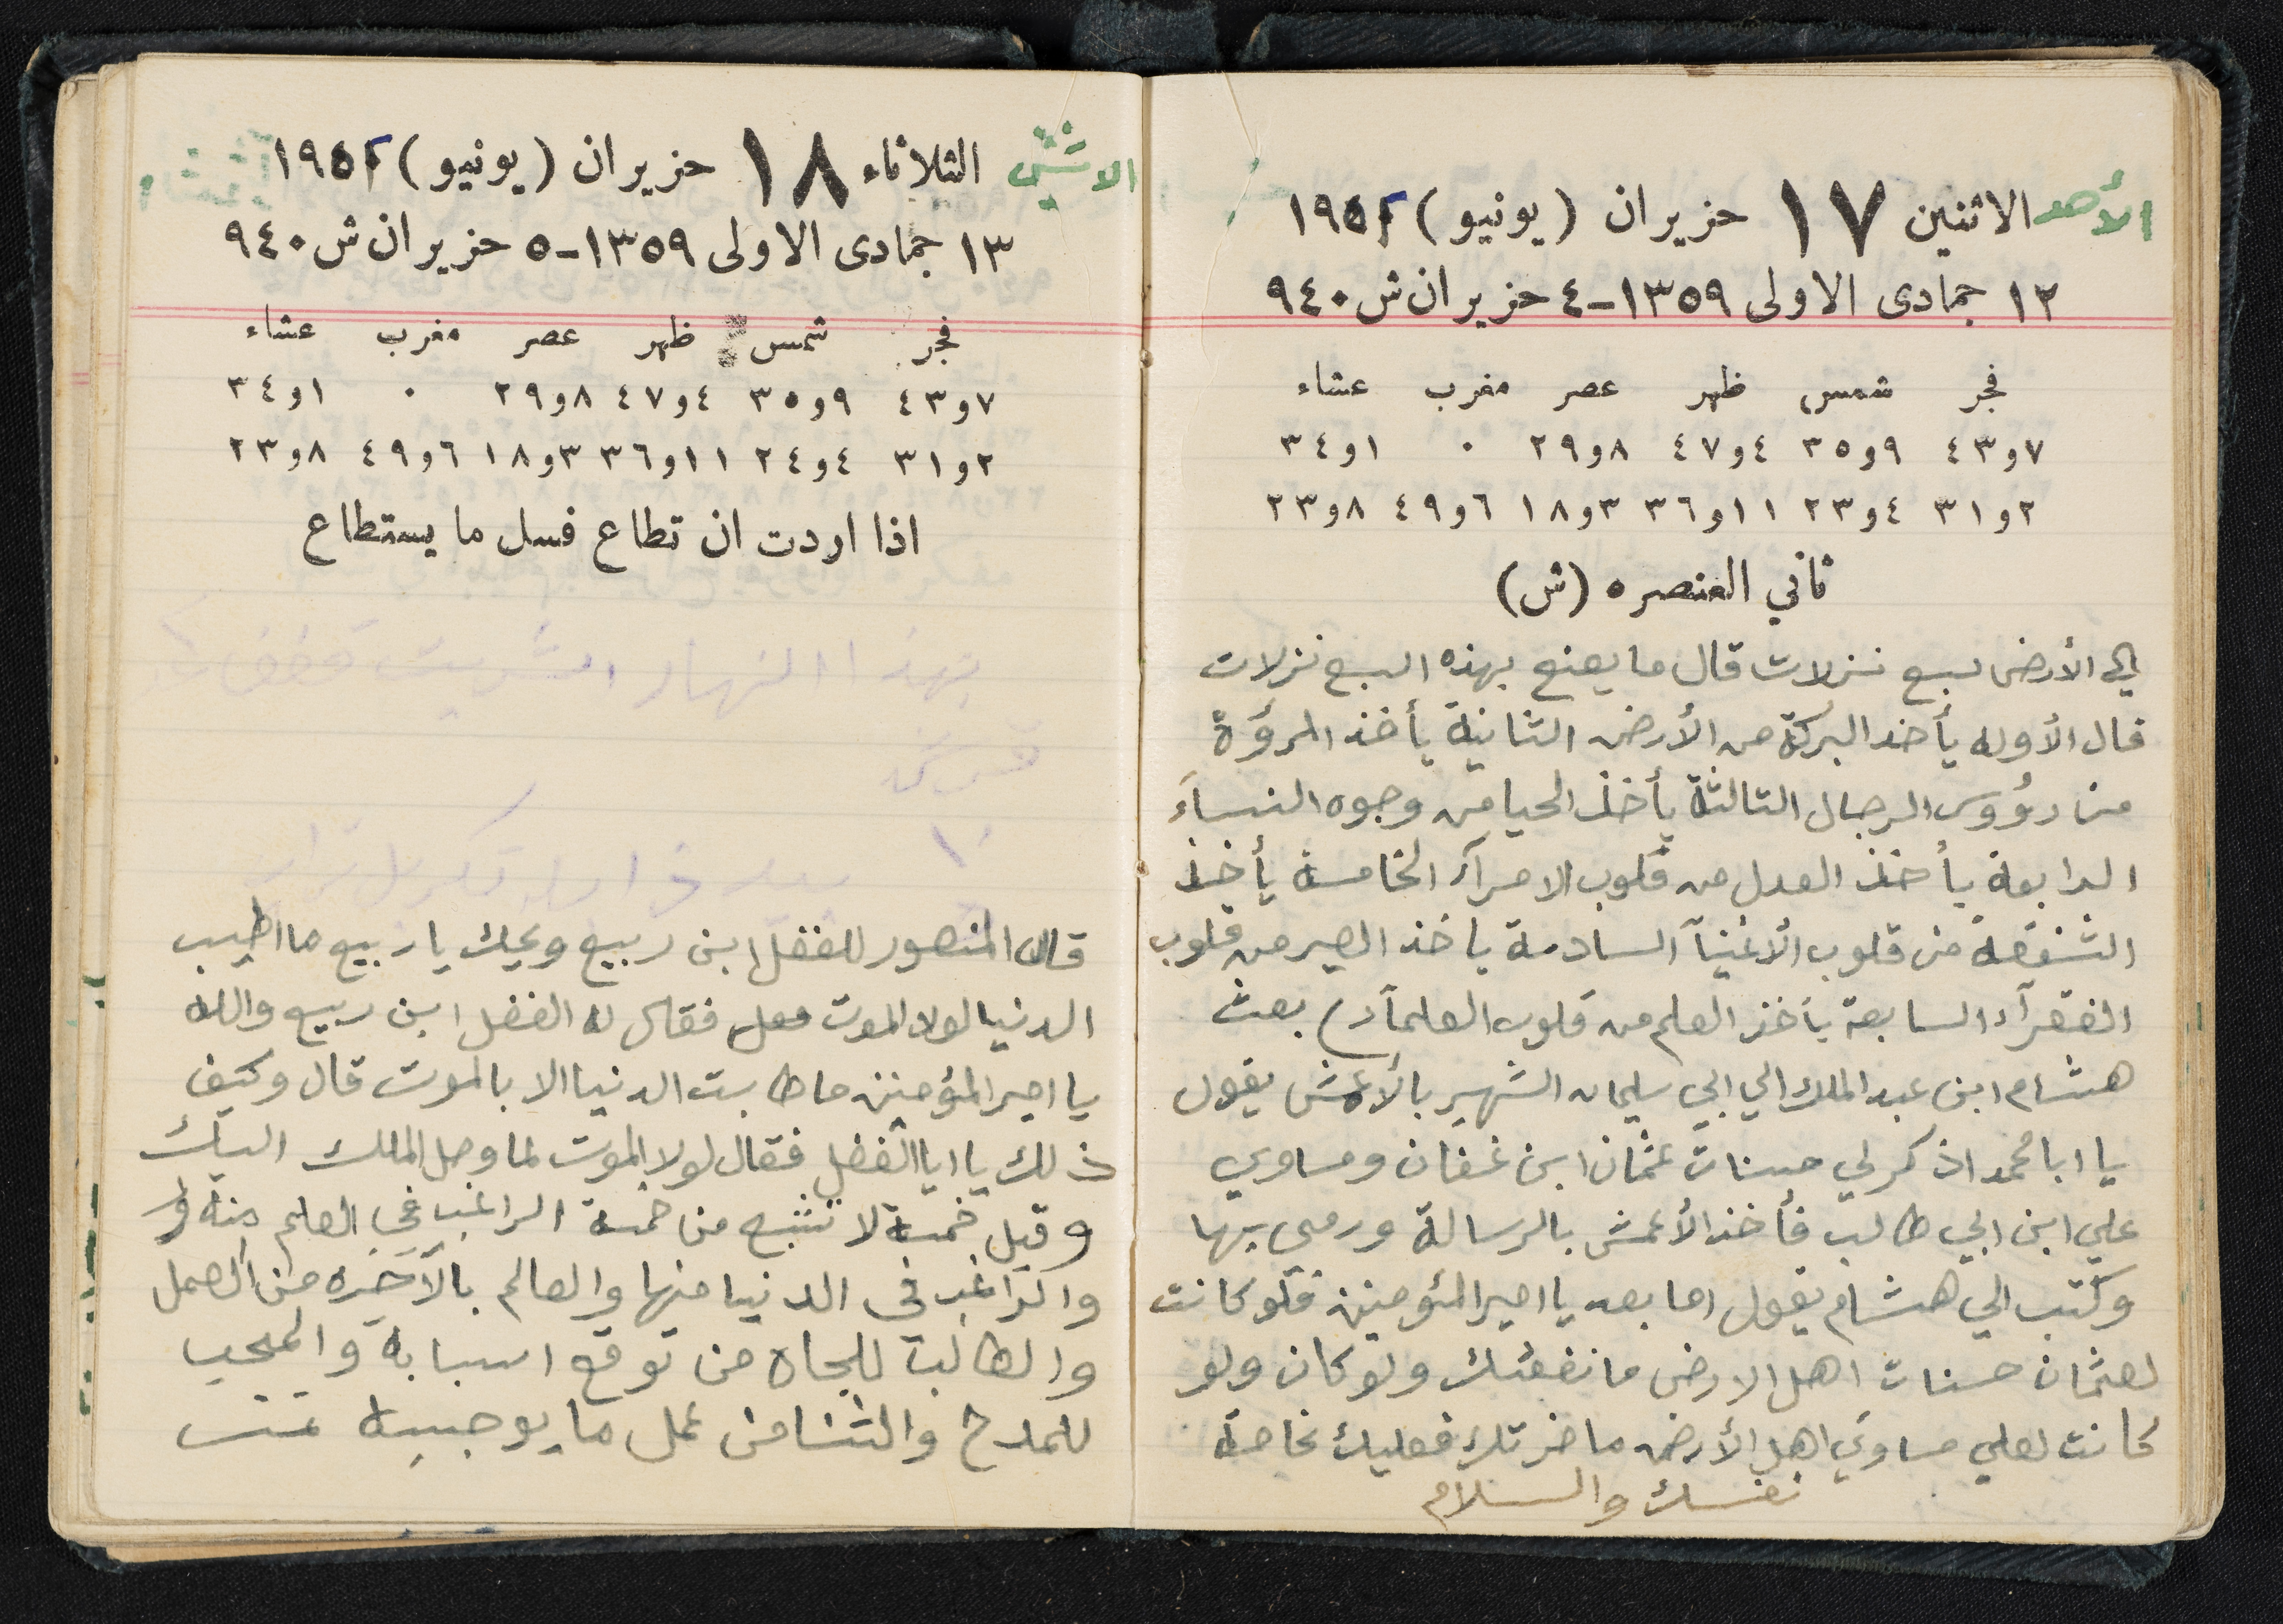 الأحد الاثنين ١٧ حزيران (يونيو) ١٩٥٢
١٢ جمادى الاولى ١٣٥٩-٤ حزيران ش ٩٤٠
فجر شمس ظهر عصر مغرب عشاء
٧و٤٣ ٩و٣٥ ٤و٤٧ ٨و٢٩ ٠ ١و٣٤
٢و٣١ ٤و٢٣ ١١و٣٦ ٣و١٨ ٦و٤٩ ٨و٢٣
ثاني العنصره (ش)
الي الأرض سبع نزلات قال ما يصنع بهذه السبع نزلات
قال الأوله يأخذ البركة من الأرض الثانية يأخذ المرؤة
من رؤوس الرجال الثالثة يأخذ الحيا من وجوه النسآء
الرابعة يأخذ العدل من قلوب الامرآء الخامسة يأخذ
الشفقة من قلوب الأغنيآ السادسة ياخذ الصبر من قلوب
الفقرآء السابعة يأخذ العلم من قلوب العلمآء) بعث
هشام ابن عبد الملك الي ابي سليمان الشهير بالأعمش يقول
يا ابا محمد اذكر لي حسنات عثمان ابن عفان ومساوي
علي ابن ابي طالب فأخذ الأعمش بالرسالة ورمى بها
وكتب الي هشام يقول اما بعد يا امير المئومنين فلو كانت
لعثمان حسنات اهل الارض ما نفعتك ولو كان ولو
كانت لعلي مساوي اهل الأرض ما ضرتك فعليك بخاصة
نفسك والسلام
الاثنين الثلاثاء ١٨ حزيران (يونيو) ١٩٥٢
١٣ جمادى الاولى ١٣٥٩-٥ حزيران ش ٩٤٠
فجر شمس ظهر عصر مغرب عشاء
٧و٤٣ ٩و٣٥ ٤و٤٧ ٨و٢٩ ٠ ١و٣٤
٢و٣١ ٤و٢٤ ١١و٣٦ ٣و١٨ ٦و٤٩ ٨و٢٣
اذا اردت ان تطاع فسل ما يستطاع
بهذا النهار
قال المنصور للفضل ابن ربيع ويحك يا ربيع ما اطيب
الدنيا لولا الموت فقال له الفضل ابن ربيع والله
يا امير المؤمنين ما طابت الدنيا الا بالموت قال وكيف
ذلك يا ابا الفضل فقال لولا الموت لما وصل الملك اليك
وقيل خمسة لا تشبع من خمسة الراغب في العلم منه
والراغب في الدنيا منها والعالم بالآخره من العمل
والطالب للجاه من توقع اسبابه والمحب
للمدح والثنا من عمل ما يوجبه تمت